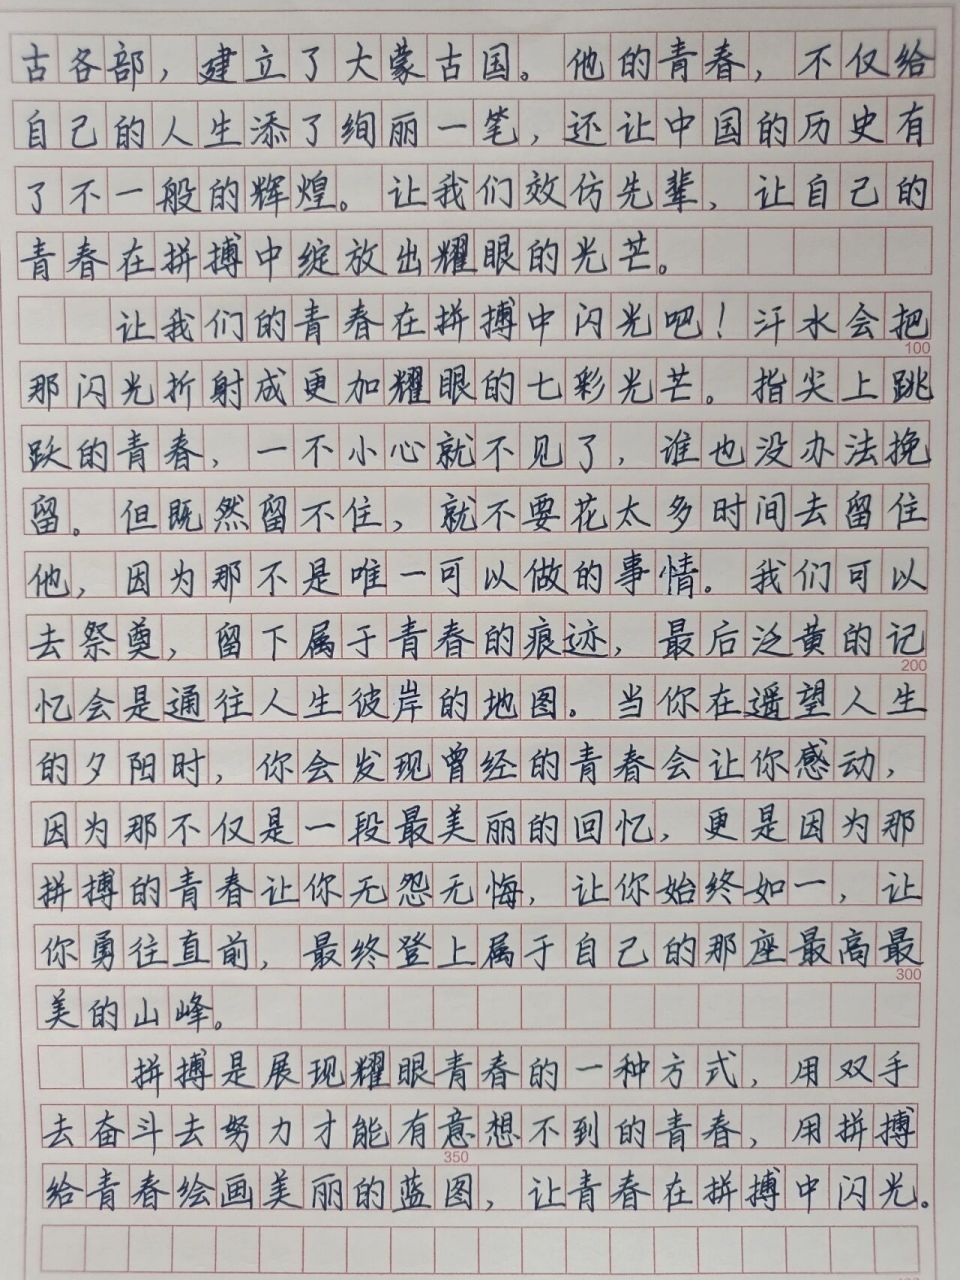 古各部，建立了大蒙古国。他的青春，不仅给
自己的人生添了绚丽一笔，还让中国的历史有
了不一般的辉煌。让我们效仿先辈，让自己的
青春在拼搏中绽放出耀眼的光芒。
让我们的青春在拼搏中闪光吧！汗水会把
100
那闪光折射成更加耀眼的七彩光芒。指尖上跳
跃的青春，一不小心就不见了，谁也没办法挽
留。但既然留不住，就不要花太多时间去留住
他，因为那不是唯一可以做的事情。我们可以
去祭奠，留下属于青春的痕迹，最后泛黄的记
200
忆会是通往人生彼岸的地图。当你在遥望人生
的夕阳时，你会发现曾经的青春会让你感动，
因为那不仅是一段最美丽的回忆，更是因为那
拼搏的青春让你无怨无悔，让你始终如一，让
你勇往直前，最终登上属于自己的那座最高最
300
美的山峰。
拼搏是展现耀眼青春的一种方式，用双手
去奋斗去努力才能有意想不到的青春，用拼搏
350
给青春绘画美丽的蓝图，让青春在拼搏中闪光。